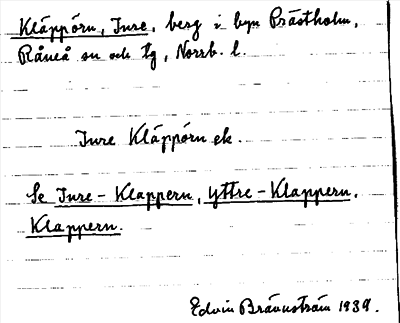 Kläppörn, Inre, berg i byn Prästholm,
Råneå sn och tg, Norrb. l.
Inre Kläppörn ek.
Se Inre-Klappern, Yttre-Klappern,
Klappern.
Edvin Brännström 1939.